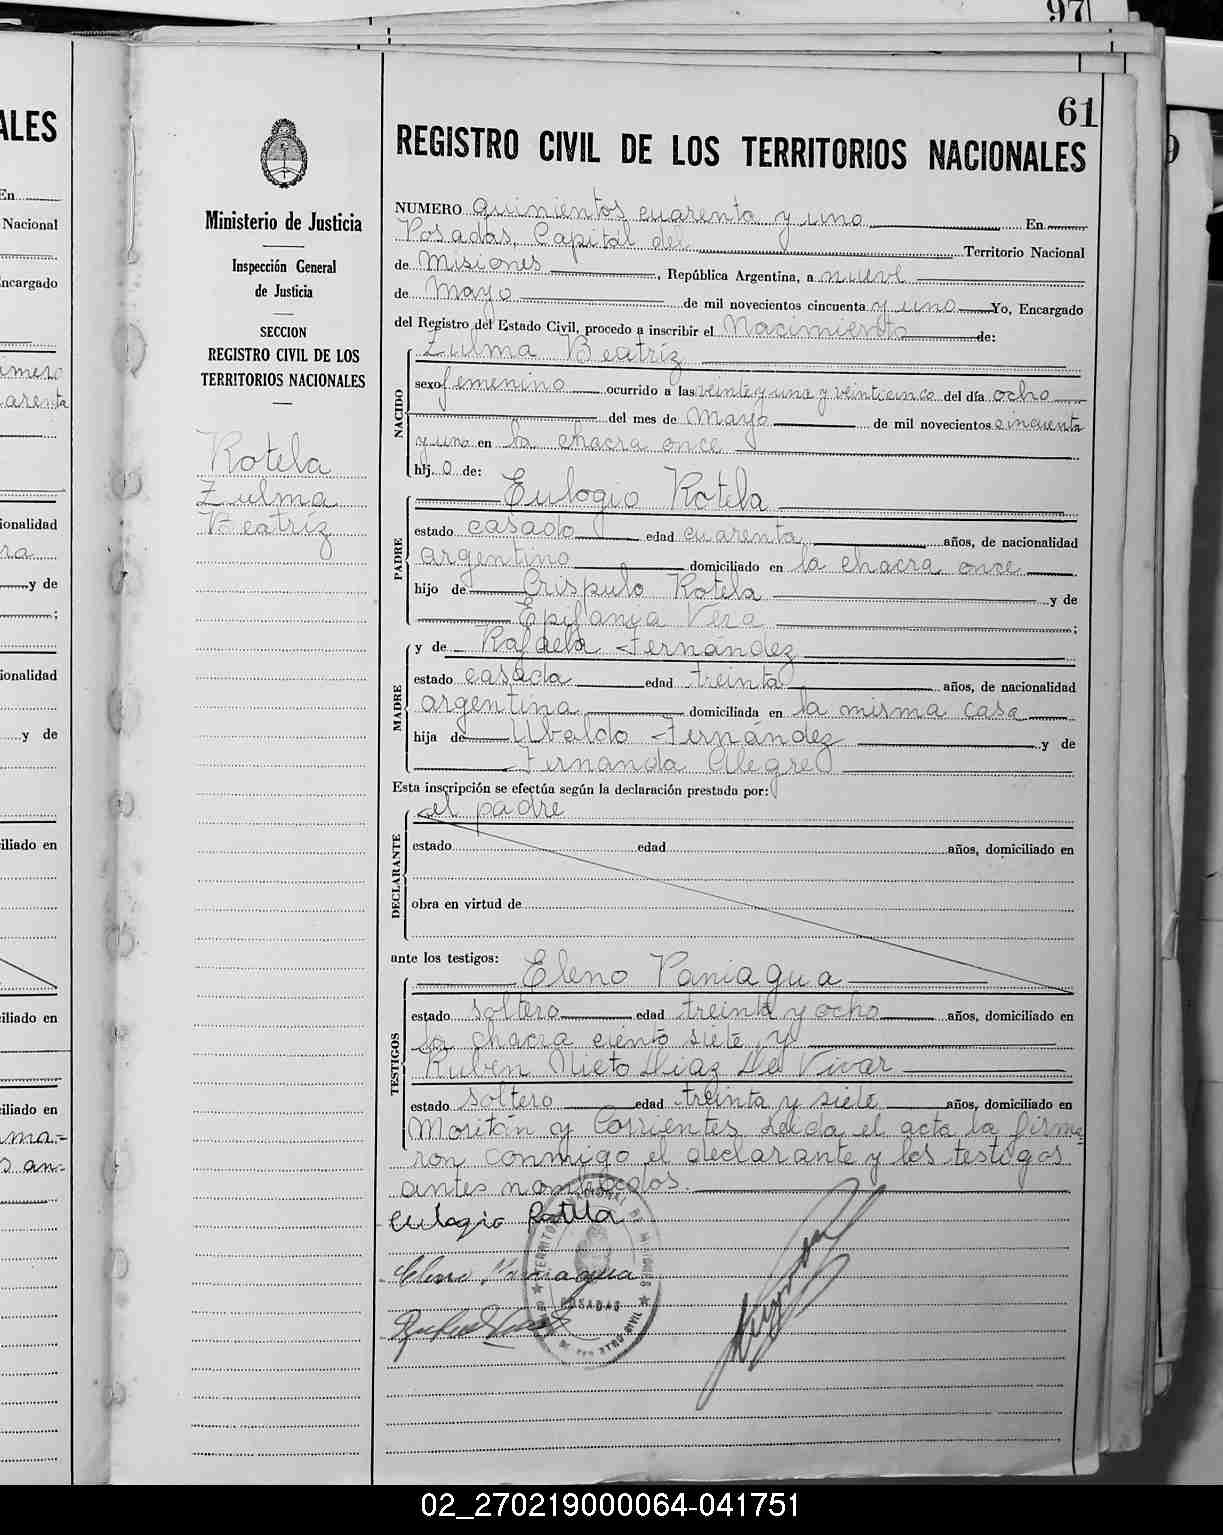 97
61
REGISTRO CIVIL DE LOS TERRITORIOS NACIONALES
Ministerio de Justicia
Inspección General
de Justicia
SECCION
REGISTRO CIVIL DE LOS
TERRITORIOS NACIONALES
Rotela
Zulma
Beatríz
NUMERO quinientos cuarenta y uno En
Posadas, Capital del Territorio Nacional
de Misiones, República Argentina, a nueve
de Mayo de mil novecientos cincuenta y uno Yo, Encargado
del Registro del Estado Civil, procedo a inscribir el Nacimiento de:
NACIDO
Zulma Beatríz
sexo femenino ocurrido a las veinte y una y veinticinco del día ocho
del mes de Mayo de mil novecientos cincuenta
y uno en la chacra once
hij. o de:
PADRE
Eulogio Rotela
estado casado edad cuarenta años, de nacionalidad
argentino domiciliado en la chacra once
hijo de Críspulo Rotela y de
Epifania Vera ;
MADRE
y de Rafaela Fernández
estado casada edad treinta años, de nacionalidad
argentina domiciliada en la misma casa
hija de Ubaldo Fernández y de
Fernanda Alegre
Esta inscripción se efectúa según la declaración prestada por:
DECLARANTE
el padre
estado edad años, domiciliado en
obra en virtud de
ante los testigos:
TESTIGOS
Eleno Paniagua
estado soltero edad treinta y ocho años, domiciliado en
la chacra ciento siete y
Rubén Nieto Diaz De Vivar
estado soltero edad treinta y siete años, domiciliado en
Moritán y Corrientes. Leida el acta la firma=
ron conmigo el declarante y los testigos
antes nombrados.
eulogio Rotela
Eleno Paniagua
POSADAS
ALES
En
Nacional
ncargado
arenta
ionalidad
ra
y de
;
ionalidad
y de
iliado en
iliado en
iliado en
ma=
an=
02_270219000064-041751